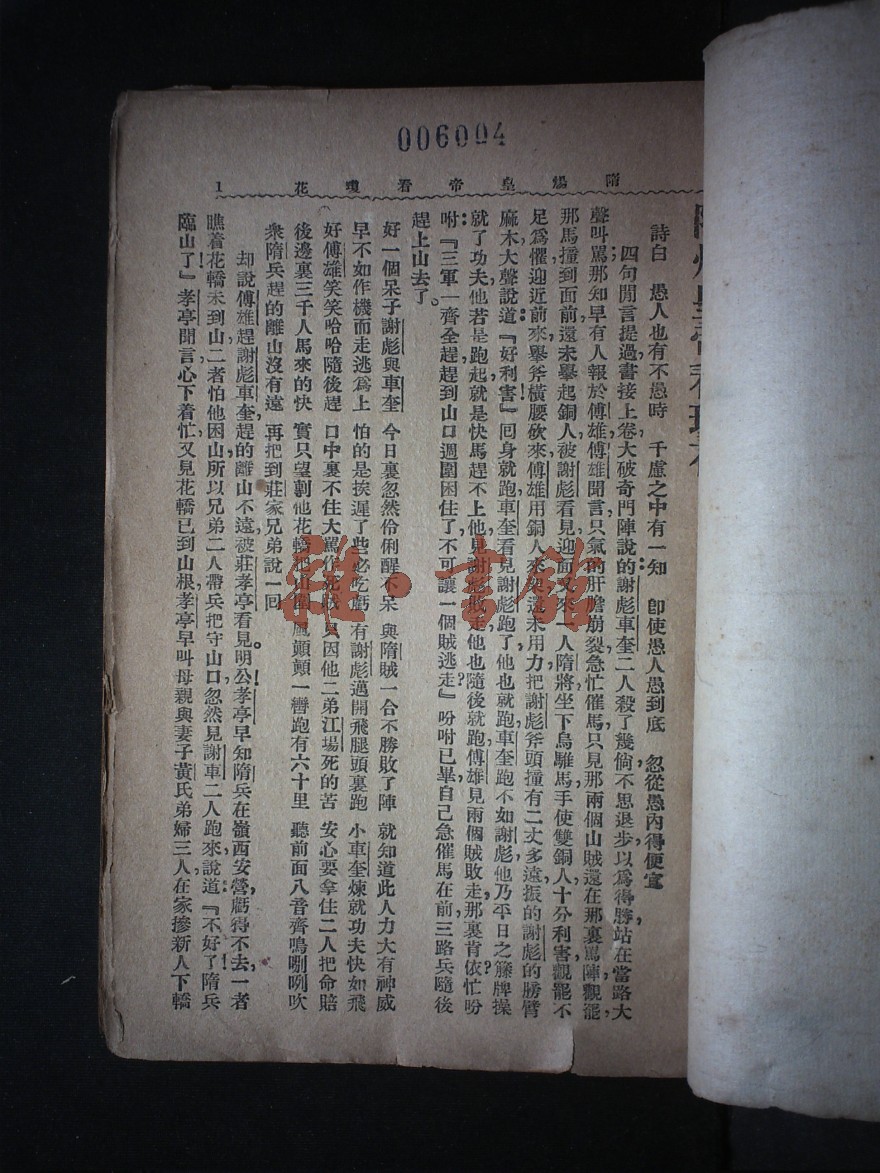 006004
隋煬皇帝看瓊花
1
詩白 愚人也有不愚時 千慮之中有一知 卽使愚人愚到底 忽從愚內得便宜
四句閒言提過書接上卷大破奇門陣說的謝彪車奎二人殺了幾倘不思退步以爲得勝站在當路大
聲叫罵那知早有人報於傅雄傅雄聞言只氣的肝膽崩裂急忙催馬只見那兩個山賊還在那裏罵陣觀罷
那馬撞到面前還未舉起銅人被謝彪看見迎面又來一人隋將坐下烏騅馬手使雙銅人十分利害觀罷不
足爲懼迎近前來舉斧橫腰砍來傅雄用銅人來架還未用力把謝彪斧頭撞有二丈多遠振的謝彪的膀臂
麻木大聲說道『好利害』回身就跑車奎看見謝彪跑了他也就跑車奎跑不如謝彪他乃平日之籐牌操
就了功夫他若是跑起就是快馬趕不上他見謝彪敗走他也隨後就跑傅雄見兩個賊敗走那裏肯依忙吩
咐『三軍一齊全趕趕到山口週圍困住了不可讓一個賊逃走』吩咐已畢自己急催馬在前三路兵隨後
趕上山去了。
好一個呆子謝彪與車奎 今日裏忽然伶俐醒不呆 與隋賊一合不勝敗了陣 就知道此人力大有神威
早不如作機而走逃爲上 怕的是挨遲了些必吃虧 有謝彪邁開飛腿頭裏跑 小車奎煉就功夫快如飛
好傅雄笑笑哈哈隨後趕 口中裏不住大罵作死賊 只因他二弟江場死的苦 安心要拿住二人把命賠
後邊裏三千人馬來的快 實只望剿他花轎把山圍 風顚顚一轡跑有六十里 聽前面八音齊鳴喇咧吹
衆隋兵趕的離山沒有遠 再把到莊家兄弟說一回
却說傅雄趕謝彪車奎趕的離山不遠被莊孝亭看見明公孝亭早知隋兵在嶺西安營虧得不去一者
瞧着花轎未到山二者怕他困山所以兄弟二人帶兵把守山口忽然見謝車二人跑來說道『不好了隋兵
臨山了』孝亭聞言心下着忙又見花轎已到山根孝亭早叫母親與妻子黃氏弟婦三人在家摻新人下轎